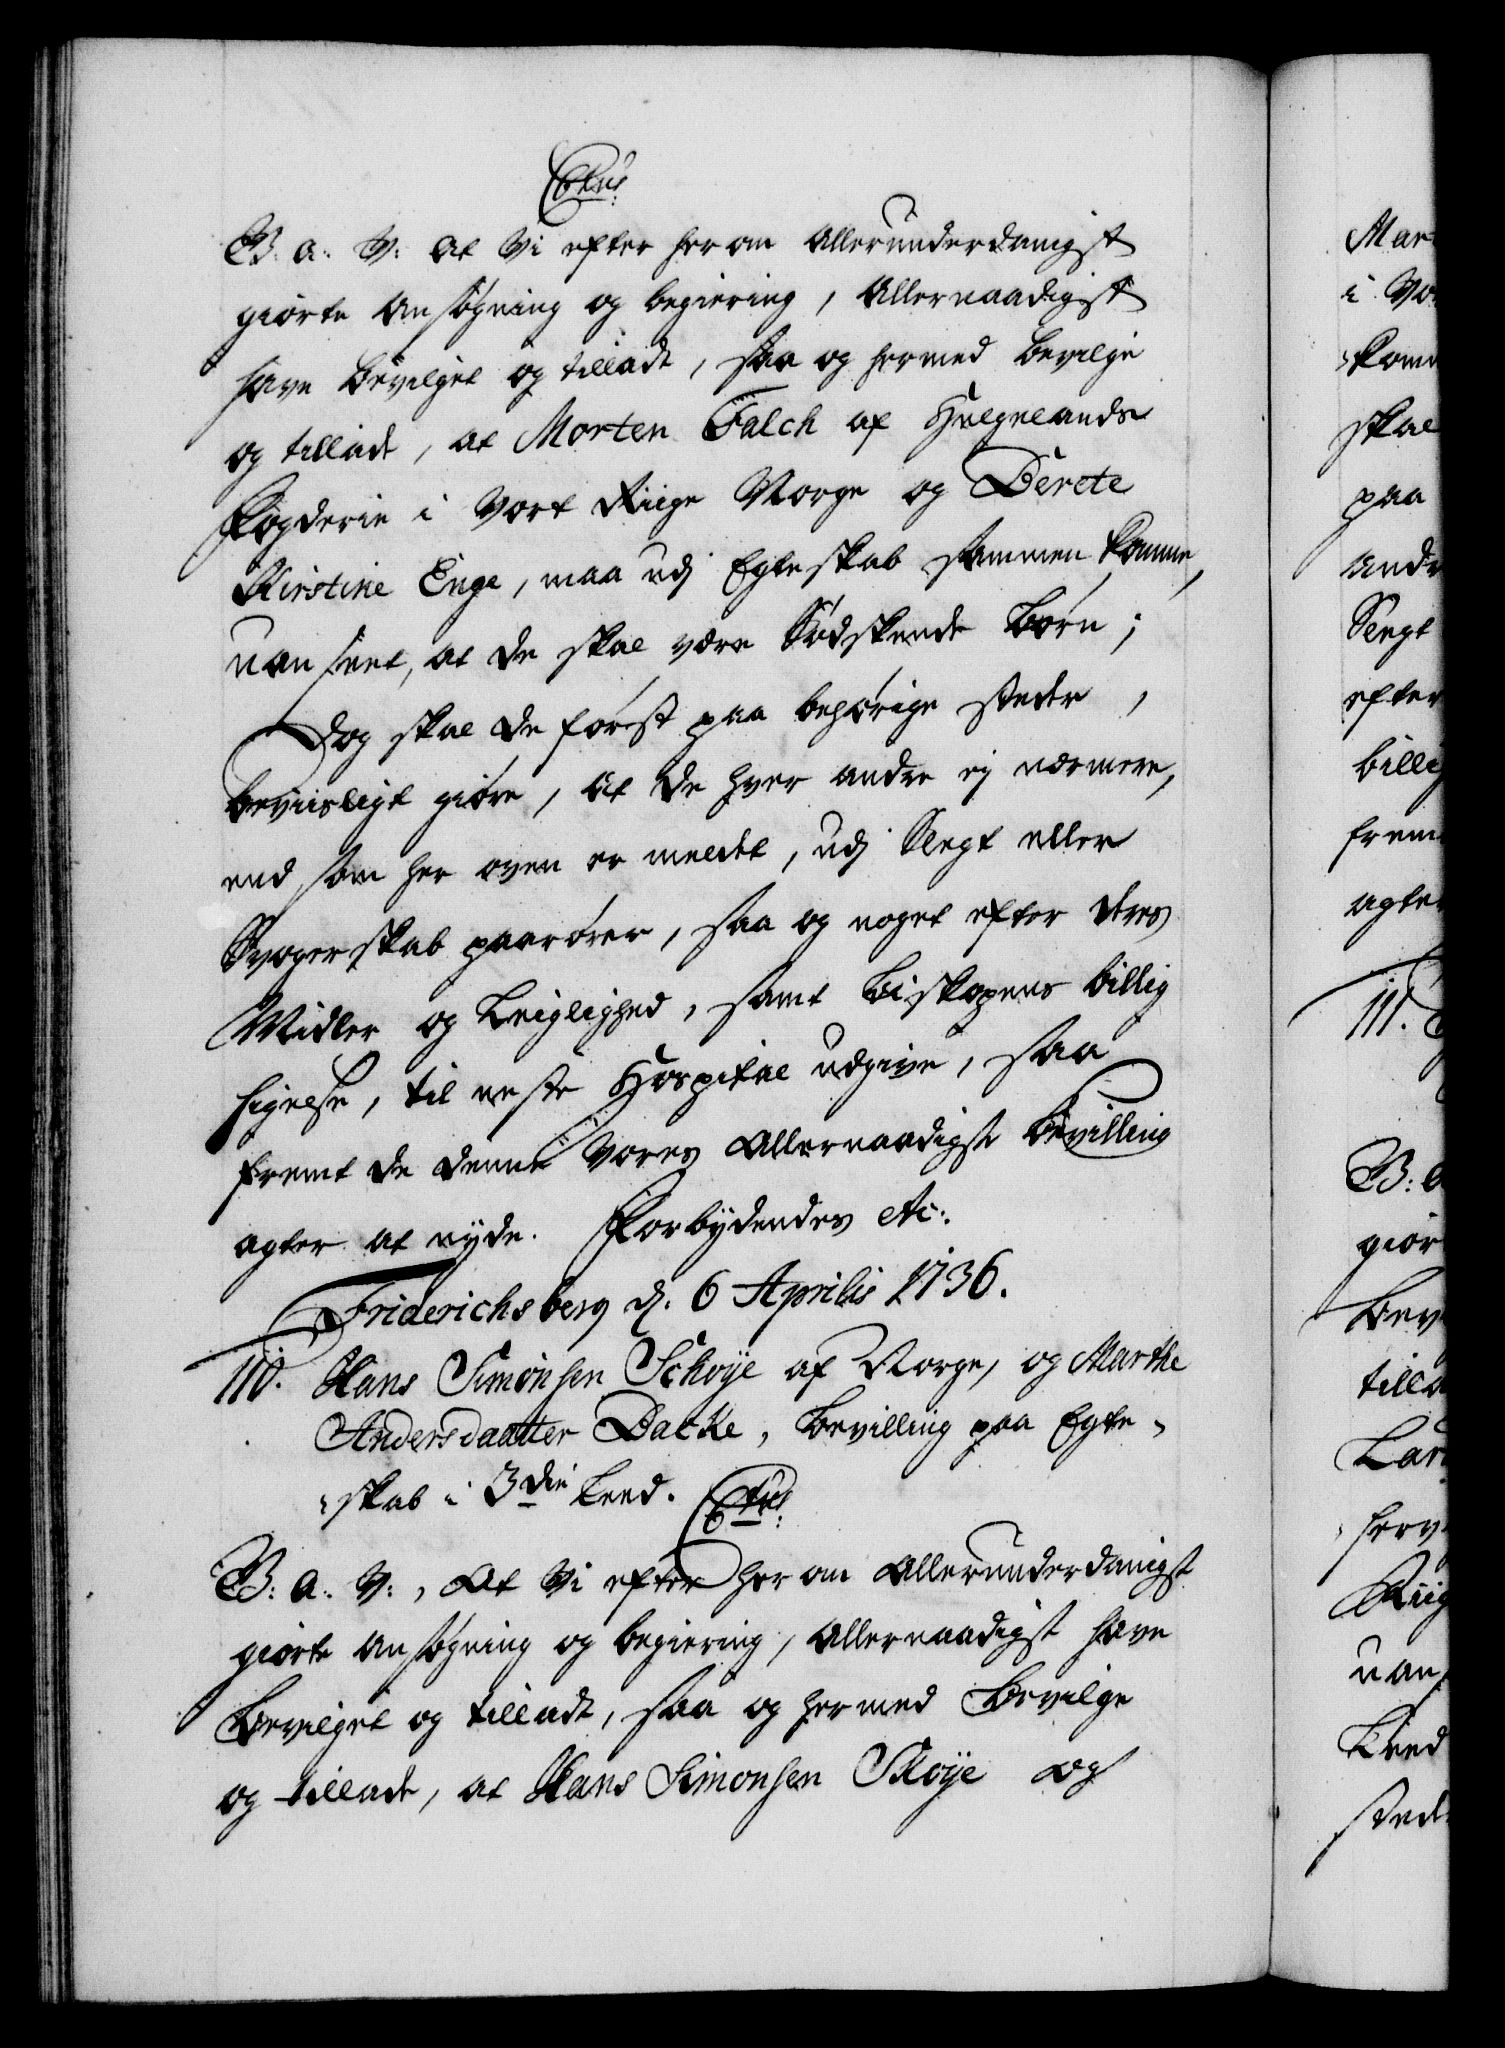 Ctus:
G: a: V: At Vi efter herom allerunderdanigst
giorte ansøgning og begiering, allernaadigst
have bevilget og tilladt, saa og hermed bevilge
og tillade, at Morten Falch af Helgelands
Fogderie i Vort Riige Norge og Derete
Kirstine Enge, maa udj Egteskab sammen komme,
uanseet, at de skal være Södskende Börn;
Dog skal de först paa behörige steder,
beviisligt giöre, at de hver andre ej nærmere,
end som her oven er meldt, udj Slegt eller
Svogerskab paarörer, saa og noget efter deres
Midler og Leiglighed, samt Biskopens billig
sigelse, til neste Hospital udgive, saa
fremt de denne Vores allernaadigste Bevilling
agter at nyde. Forbydendes etc:
Friderichsberg d: 6 Aprilis 1736.
110. Hans Simonsen Schöye af Norge, og Marthe
Andersdaatter Dacke, Bevilling paa Egte-
skab i 3die Leed. Ctus:
G: a: V:, At Vi efter herom allerunderdanigst
giorte ansøgning og begiering, allernaadigst have
bevilget og tilladt, saa og hermed bevilge
og tillade, at Hans Simonsen Skøye og
Mar
i Vo
skal
paa
andr
Slegt
efter
billig
frem
agte
111.
G: a
giör
bev
tilla
Riig
uan
Leed
sted